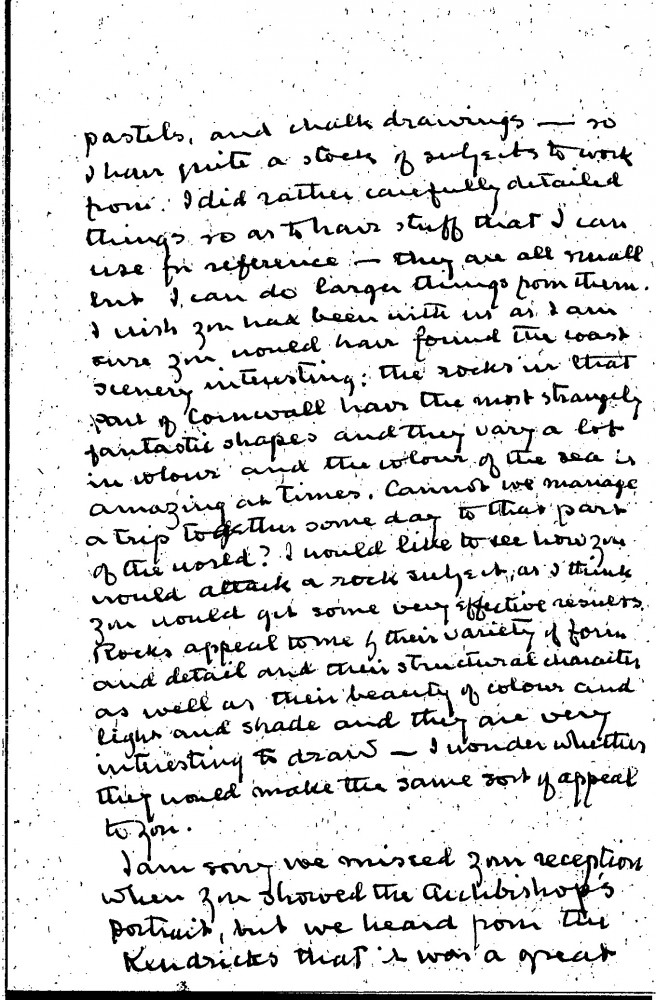 pastels, and chalk drawings — so
I have quite a stock of subjects to work
from. I did rather carefully detailed
things so as to have stuff that I can
use for reference — they are all small
but I can do larger things from them.
I wish you had been with us as I am
sure you would have found the coast
scenery interesting: the rocks in that
part of Cornwall have the most strangely
fantastic shapes and they vary a lot
in colour and the colour of the sea is
amazing at times. Cannot we manage
a trip together some day to that part
of the world? I would like to see how you
would attack a rock subject, as I think
you would get some very effective results.
Rocks appeal to me by their variety of form
and detail and their structural character
as well as their beauty of colour and
light and shade and they are very
interesting to draw — I wonder whether
they would make the same sort of appeal
to you.
I am sorry we missed your reception
when you showed the Archbishop's
portrait, but we heard from the
Kendricks that it was a great